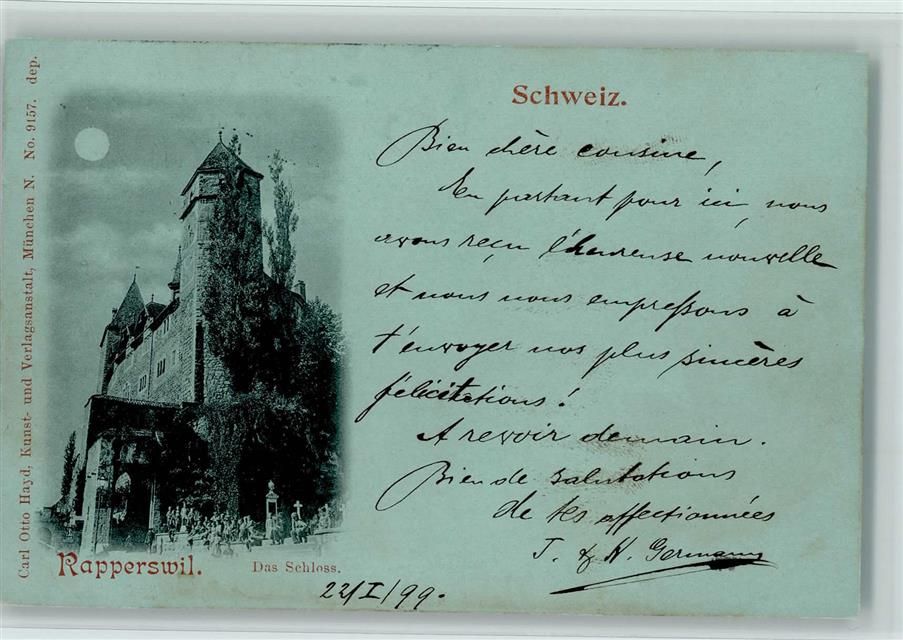 Schweiz.
Bien chère cousine,
En partant pour ici, nous
avons reçu l'heureuse nouvelle
et nous nous empressons à
t'envoyer nos plus sincères
félicitations!
A revoir demain.
Bien de salutations
de tes affectionnées
J. & H. Germann
Rapperswil.
Das Schloss.
22/I/99.
Carl Otto Hayd, Kunst- und Verlagsanstalt, München N. No. 9157. dep.